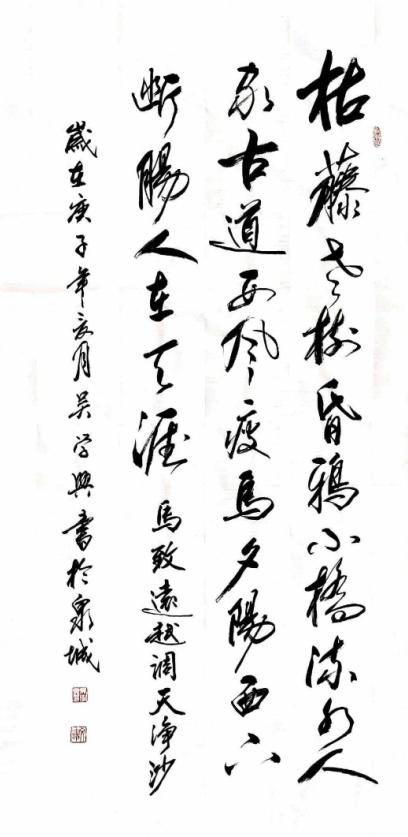 枯藤老树昏鸦小橋流水人
家古道西风瘦马夕陽西下
断腸人在天涯 馬致遠越調天净沙
歲在庚子年亥月吴学興書於泉城